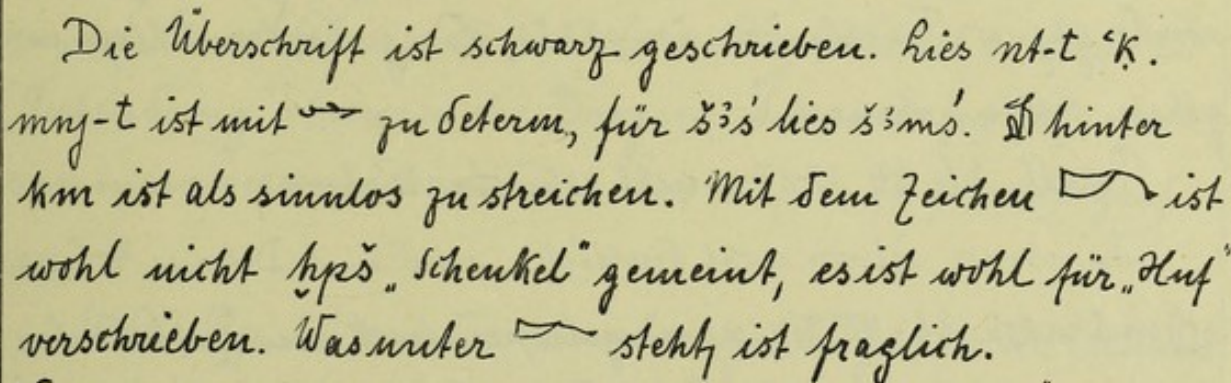 Die Überschrift ist schwarz geschrieben. Lies nt-t ꜥḳ.
mnj-t ist mit zu determ, für šꜣś lies šꜣmś. hinter
km ist als sinnlos zu streichen. Mit dem Zeichen ist
wohl nicht ḫpš „Schenkel“ gemeint, es ist wohl für „Huf“
verschrieben. Was unter steht, ist fraglich.